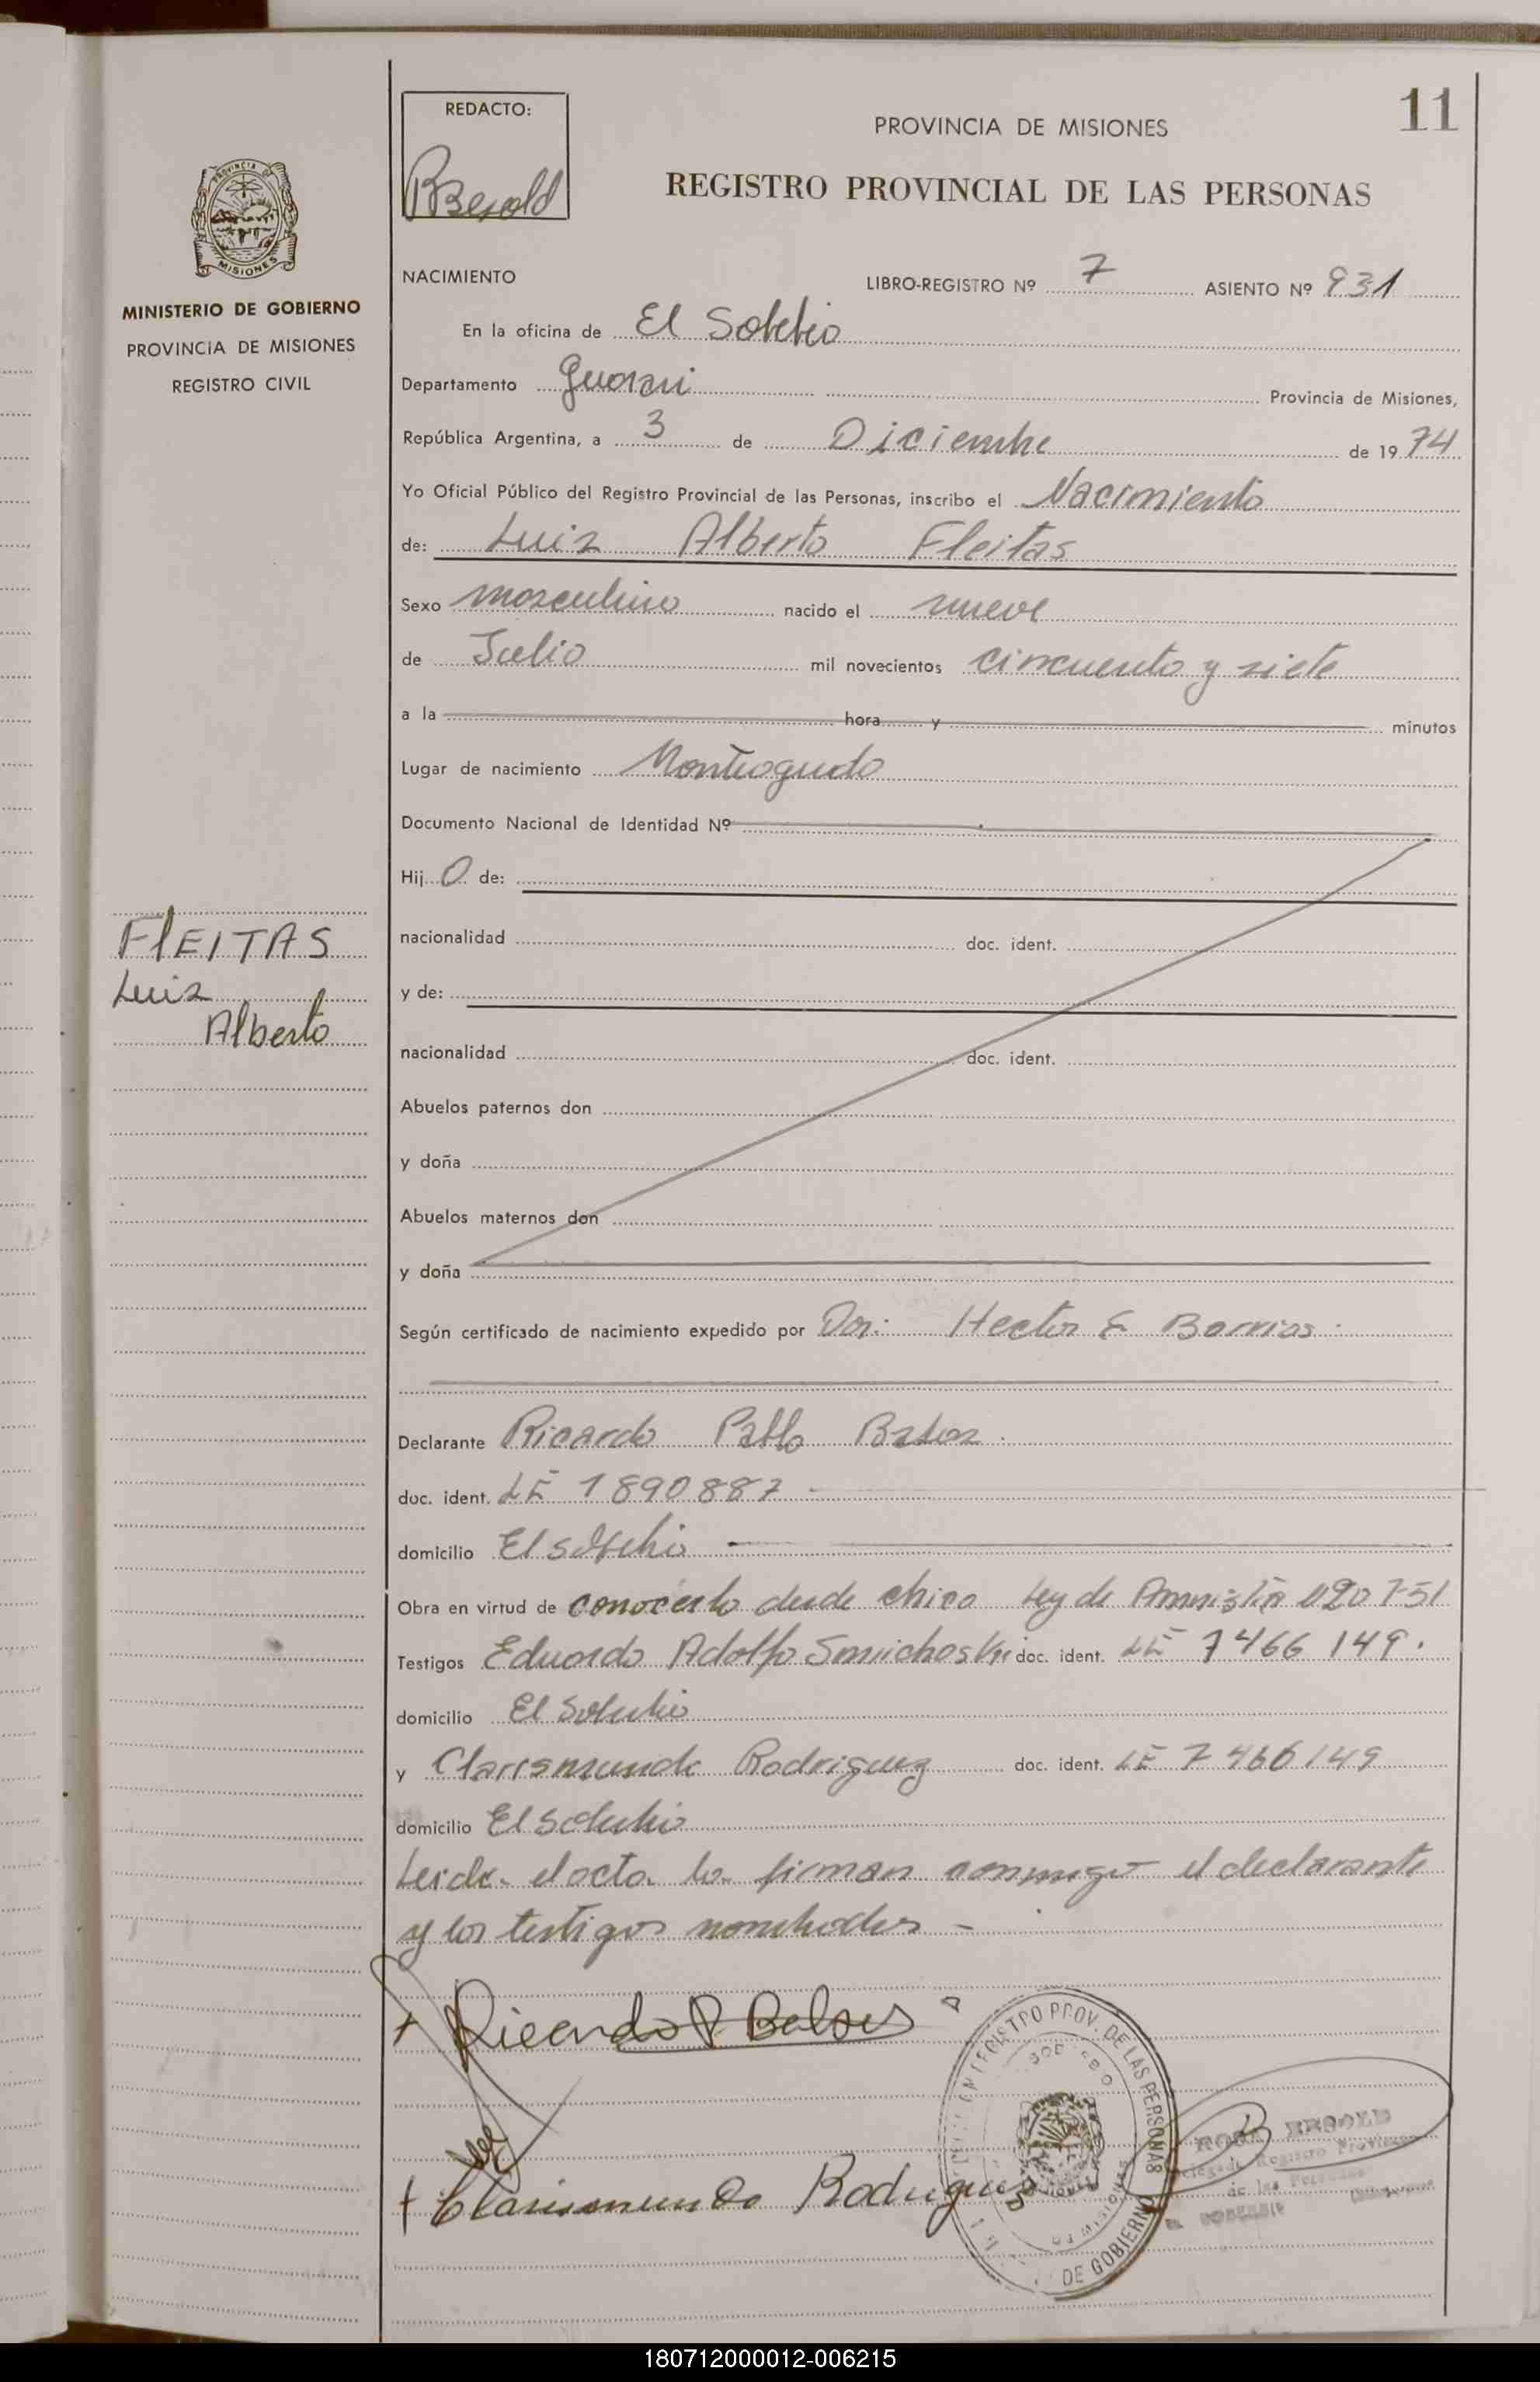 11
REDACTO:
PROVINCIA DE MISIONES
REGISTRO PROVINCIAL DE LAS PERSONAS
PROVINCIA DE
MISIONES
MINISTERIO DE GOBIERNO
PROVINCIA DE MISIONES
REGISTRO CIVIL
NACIMIENTO LIBRO-REGISTRO Nº 7 ASIENTO Nº 931
En la oficina de El Soberbio
Departamento Guarani Provincia de Misiones,
República Argentina, a 3 de Diciembre de 1974
Yo Oficial Público del Registro Provincial de las Personas, inscribo el Nacimiento
de: Luiz Alberto Fleitas
Sexo masculino nacido el nueve
de Julio mil novecientos cincuenta y siete
a la hora y minutos
Lugar de nacimiento Monteagudo
Documento Nacional de Identidad Nº
Hijo de:
FLEITAS
Luiz
Alberto
nacionalidad doc. ident.
y de:
nacionalidad doc. ident.
Abuelos paternos don
y doña
Abuelos maternos don
y doña
Según certificado de nacimiento expedido por Dor: Hector E Barrios
Declarante Ricardo Pablo
doc. ident. LE 1890887
domicilio El Soberbio
Obra en virtud de conocerlo desde chico Ley de Amnistia
Testigos Eduardo Adolfo Smichoski doc. ident. LE 7466149.
domicilio El Soberbio
y Clarismundo Rodriguez doc. ident. LE 7466149
domicilio El Soberbio
Leida el acta la firman conmigo el declarante
y los testigos nombrados -
Ricardo P
Clarismundo Rodriguez
REGISTRO PROV. DE LAS PERSONAS
DE GOBIERNO
MISIONES
180712000012-006215